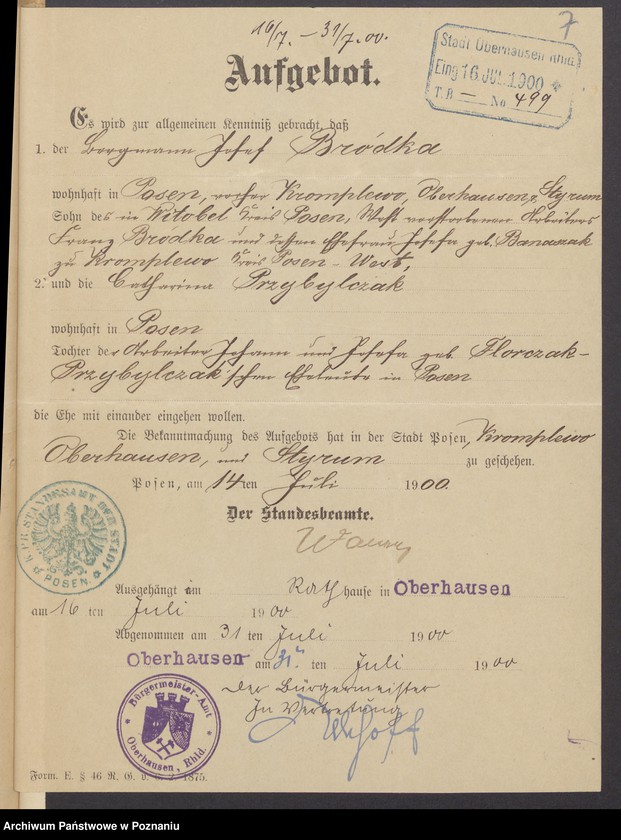 7
16/7. – 31/7. 00.
Stadt Oberhausen Rhld.
Eing. 16 JUL. 1900
T. B. — No 499
Aufgebot.
Es wird zur allgemeinen Kenntniß gebracht, daß
1. der Bergmann Josef Bródka
wohnhaft in Posen, vorher Kromplewo, Oberhausen, Styrum
Sohn des in Witobel Kreis Posen, West verstorbenen Arbeiters
Franz Bródka und dessen Ehefrau Josefa geb. Banaszak
zu Kromplewo Kreis Posen – West,
2. und die Catharina Przybylczak
wohnhaft in Posen
Tochter der Arbeiter Johann und Josefa geb. Florczak-
Przybylczak'schen Eheleute in Posen
die Ehe mit einander eingehen wollen.
Die Bekanntmachung des Aufgebots hat in der Stadt Posen, Kromplewo
Oberhausen, und Styrum zu geschehen.
Posen, am 14ten Juli 1900.
Der Standesbeamte.
K. PR. STANDESAMT DER STADT POSEN
Ausgehängt am Rathhause in Oberhausen
am 16 ten Juli 1900
Abgenommen am 31 ten Juli 1900
Oberhausen am 31. ten Juli 1900
Der Bürgermeister
In Vertretung
Bürgermeister-Amt
Oberhausen, Rhld.
Form. E. § 46 R. G. v. 6. 2. 1875.
Archiwum Państwowe w Poznaniu